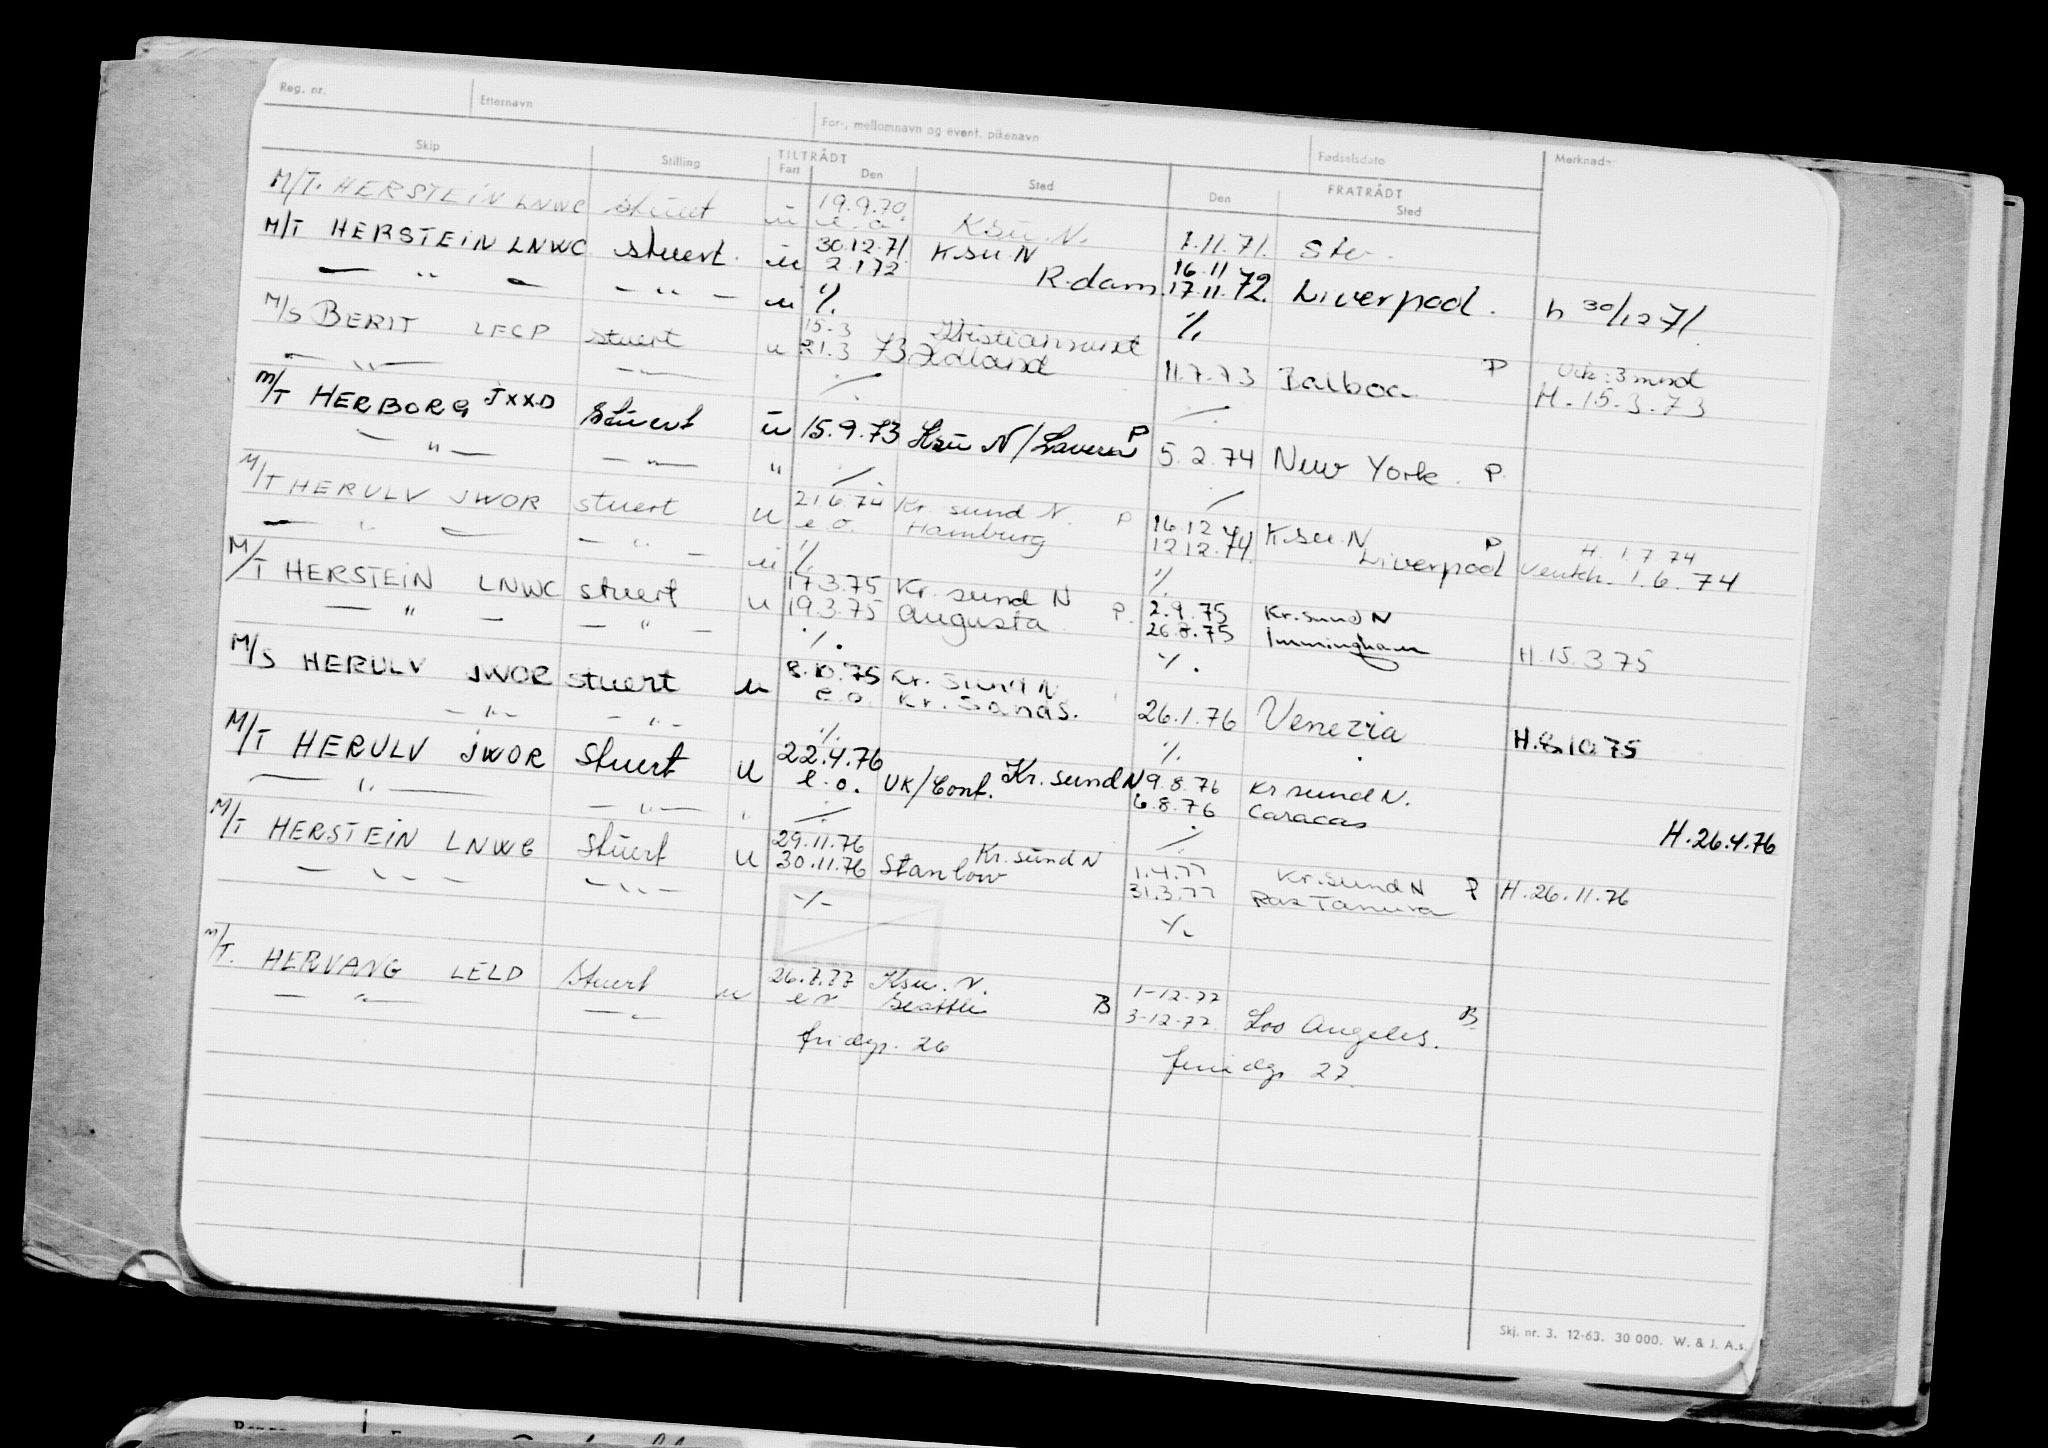 Reg. nr. Etternavn For-, mellomnavn og event. pikenavn Fødselsdato Merknader
Skip Stilling TILTRÅDT FRATRÅDT
Fart Den Sted Den Sted
M/T. HERSTEIN LNWC stuert u 19.9.70 Ksu. N. 1.11.71.
e.o.
M/T HERSTEIN LNWC stuert. u 30.12.71 Ksu N 16.11
2.1.72 R.dam. 17.11.72. Liverpool. h 30/12 71.
— " — — " — u %. %
M/S BERIT LECP stuert u 15.3 Kristiansund
21.3 73 11.7.73 Balboa P H. 15.3.73
— " — — " —
M/T HERBORG JXXD Stuert u 15.9.73 Ksu N/ P 5.2.74 New York. P.
— " — — " — "
M/T HERULV JWOR stuert u 21.6.74 Kr. sund N. P 16.12 Ksu N P H. 1.7 74
e.o. Hamburg 12 12.74. Liverpool 1.6.74
— " — — " — u % %
M/T HERSTEIN LNWC stuert u 17.3.75 Kr. sund N 2.9.75 Kr. sund N
19.3.75 Augusta P. 26.8.75 Immingham H.15.3 75
— " — — " — %. %.
M/S HERULV JWOR stuert u 8.10.75 Kr. sund N
e.o. Kr. Sands. 26.1.76 Venezia H.8.10 75
— " — — " — % %
M/T HERULV JWOR Stuert u 22.4.76 Kr. sund N 9.8.76 Kr sund N.
e.o. UK/Cont. 6.8.76 Caracas H.26.4.76
— " — — " — "
M/T HERSTEIN LNWC Stuert u 29.11.76 Kr. sund N 1.4.77 Kr. sund N P H.26.11.76
30.11.76 Stanlow 31.3.77 Ras Tanura
— " — — " — -/- %
M/T. HERVANG LELD Stuert u 26.7.77 Ksu. N. 1-12-77
Seattle B 3-12-77 Los Angeles. B
— " — — " —
fridgr. 26 fridgr 27.
Skj. nr. 3. 12-63. 30 000. W. & J. A.s.